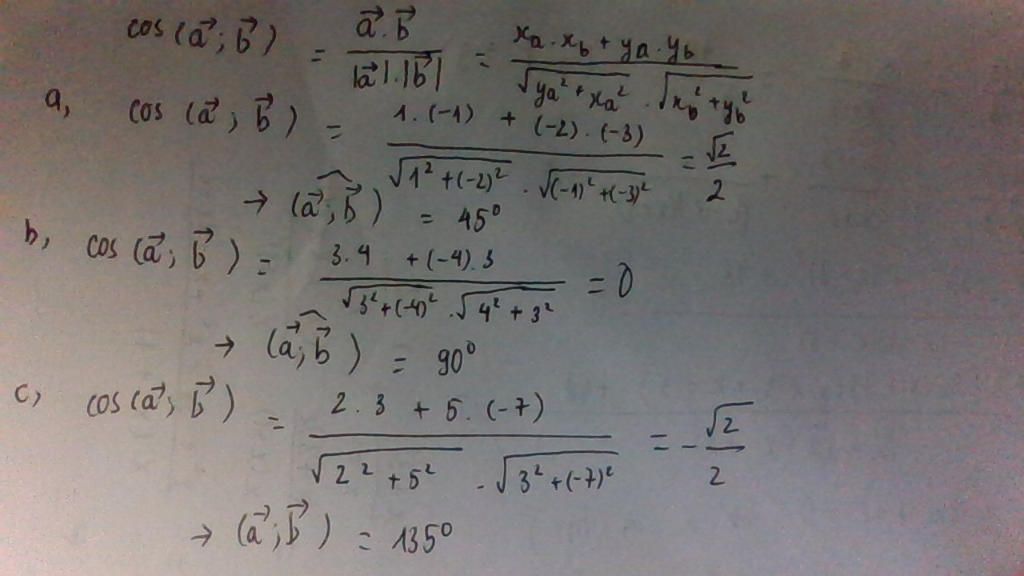 cos(a⃗; b⃗) = (a⃗.b⃗)/(|a⃗|.|b⃗|) = (xₐ.x_b + yₐ.y_b)/(√(yₐ²+xₐ²) . √(x_b²+y_b²))
a, cos(a⃗; b⃗) = (1.(-1) + (-2).(-3))/(√(1²+(-2)²) . √((-1)²+(-3)²)) = √2/2
→ (a⃗;b⃗)^ = 45°
b, cos(a⃗; b⃗) = (3.4 + (-4).3)/(√(3²+(-4)²) . √(4²+3²)) = 0
→ (a⃗;b⃗)^ = 90°
c, cos(a⃗; b⃗) = (2.3 + 5.(-7))/(√(2²+5²) . √(3²+(-7)²)) = -√2/2
→ (a⃗;b⃗) = 135°